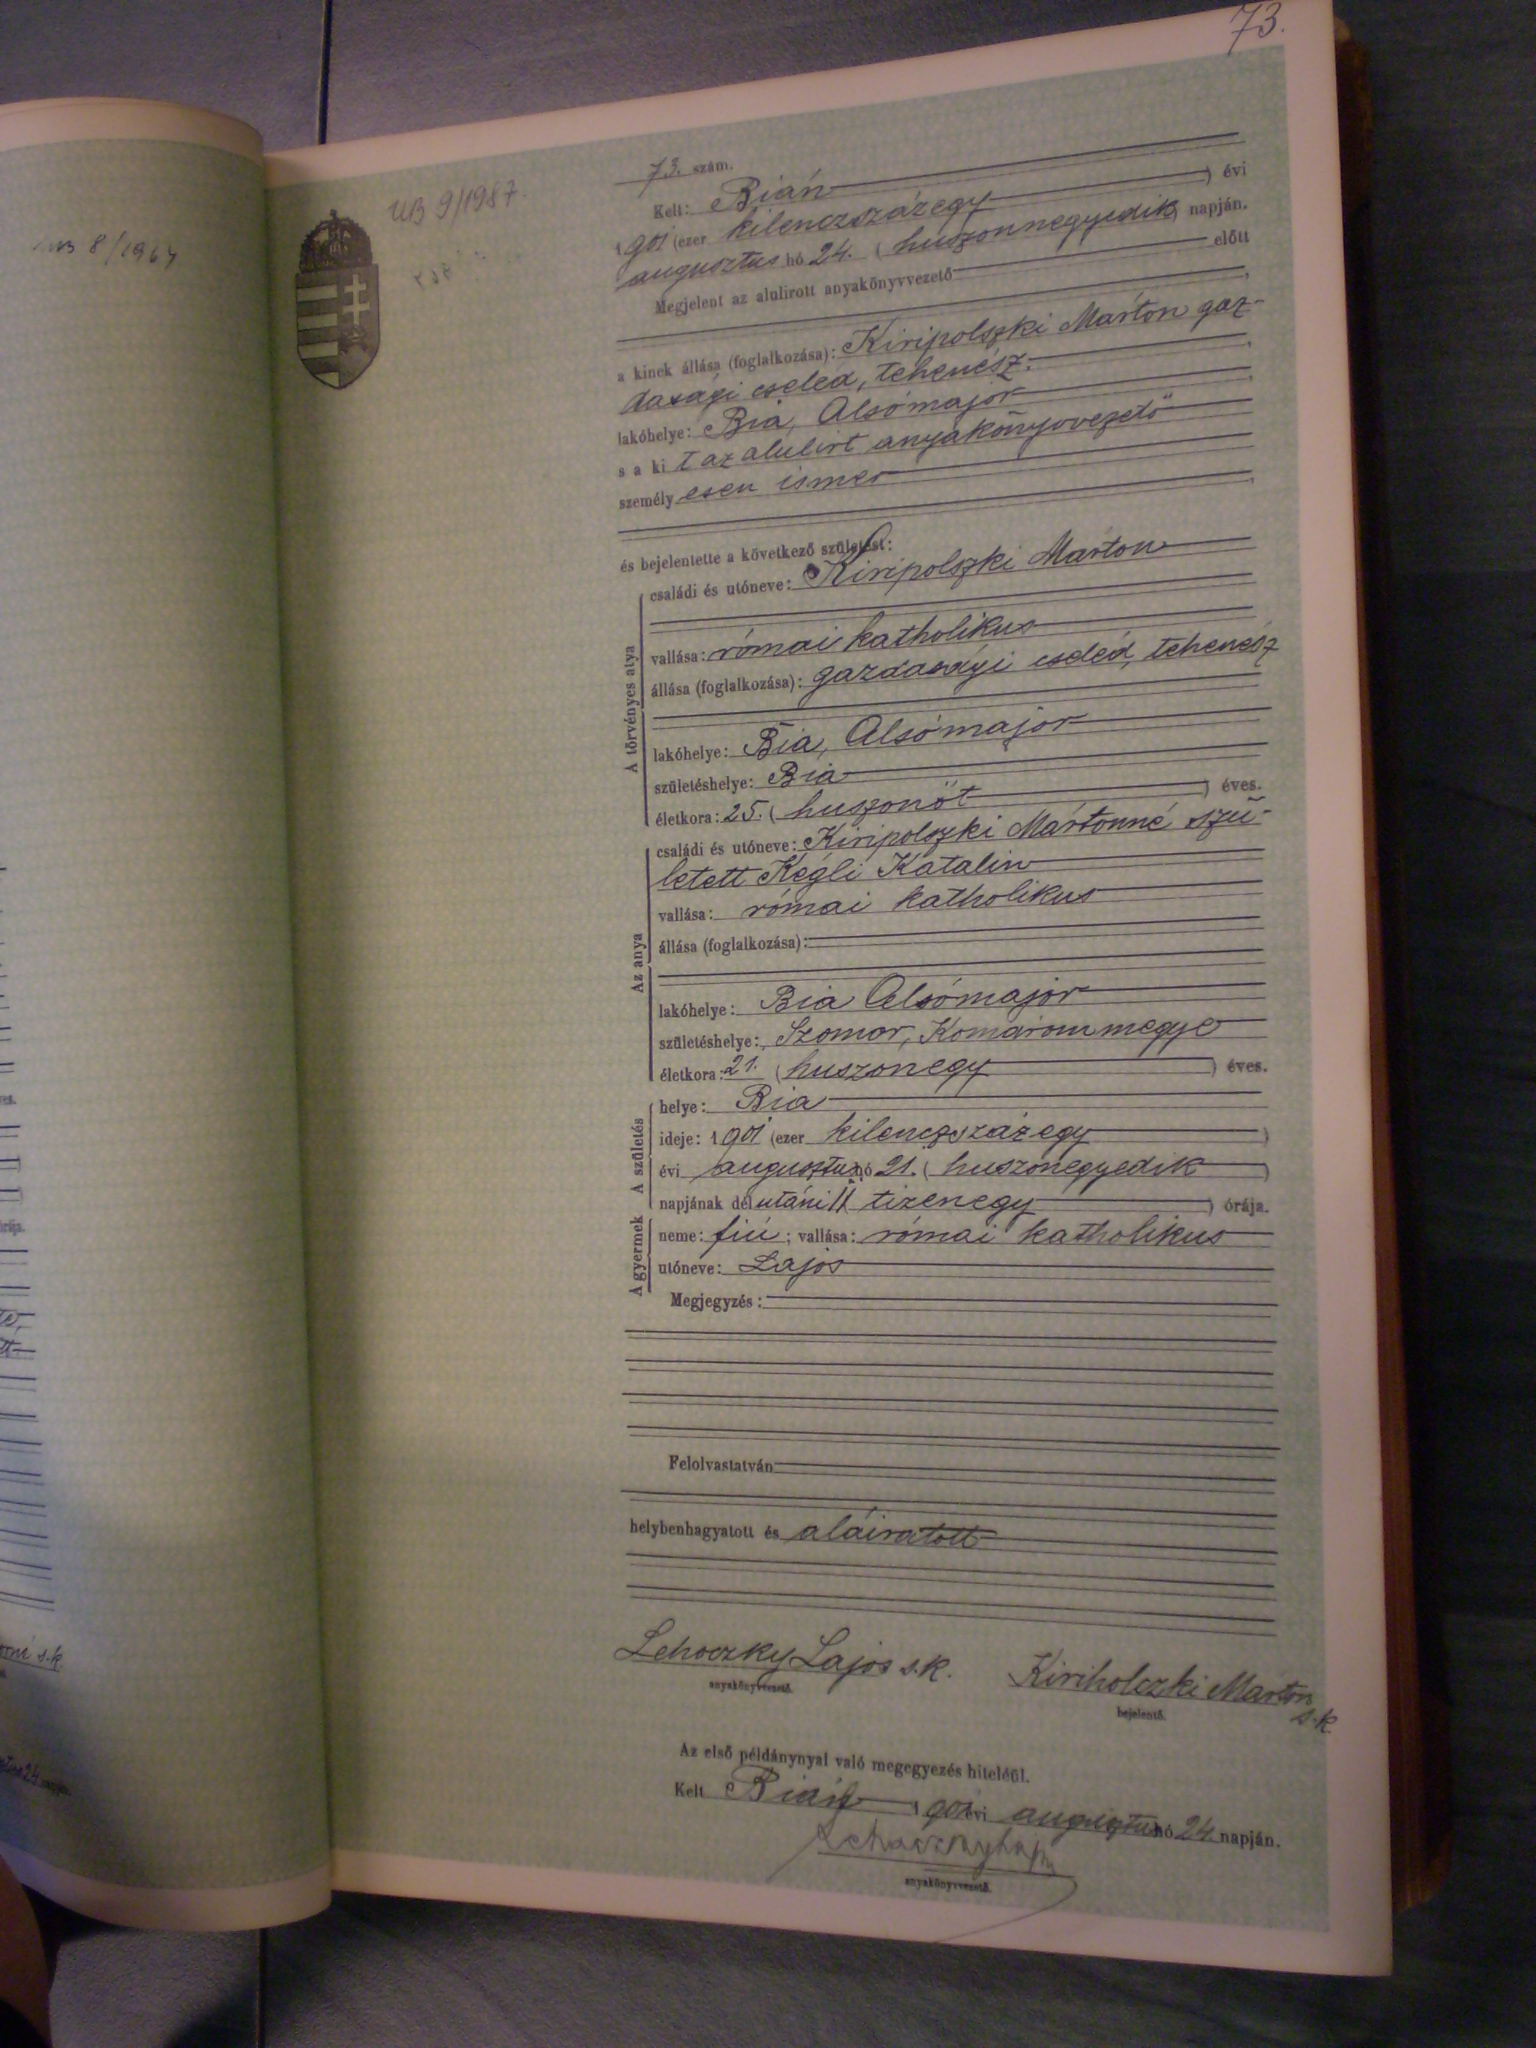 73.
73. szám.
UB 9/1987.
UB 8/1964
Kelt: Bián
1901 (ezer kilenczszázegy ) évi
augusztus hó 24. ( huszonnegyedik ) napján.
Megjelent az alulirott anyakönyvvezető előtt
a kinek állása (foglalkozása): Kiripolszki Márton gaz-
dasági cseléd, tehenész.
lakóhelye: Bia, Alsómajor
s a kit az alulirt anyakönyvvezető
személyesen ismer
és bejelentette a következő születést:
A törvényes atya
családi és utóneve: Kiripolszki Márton
vallása: római katholikus
állása (foglalkozása): gazdasági cseléd, tehenész
lakóhelye: Bia, Alsómajor
születéshelye: Bia
életkora: 25. ( huszonöt ) éves.
Az anya
családi és utóneve: Kiripolszki Mártonné szü-
letett Kégli Katalin
vallása: római katholikus
állása (foglalkozása):
lakóhelye: Bia Alsómajor
születéshelye: Szomor, Komárommegye
életkora: 21. ( huszonegy ) éves.
A születés
helye: Bia
ideje: 1901 (ezer kilenczszázegy )
évi augusztus hó 21. ( huszonegyedik )
napjának délutáni 11 tizenegy ) órája.
A gyermek
neme: fiú ; vallása: római katholikus
utóneve: Lajos
Megjegyzés:
Felolvastatván
helybenhagyatott és aláiratott
Lehoczky Lajos s.k.
anyakönyvvezető.
Kiriholczki Márton
s.k.
bejelentő.
Az első példánynyal való megegyezés hiteléül.
Kelt Bián 1901 évi augusztus hó 24 napján.
Lehoczky Lajos
anyakönyvvezető.